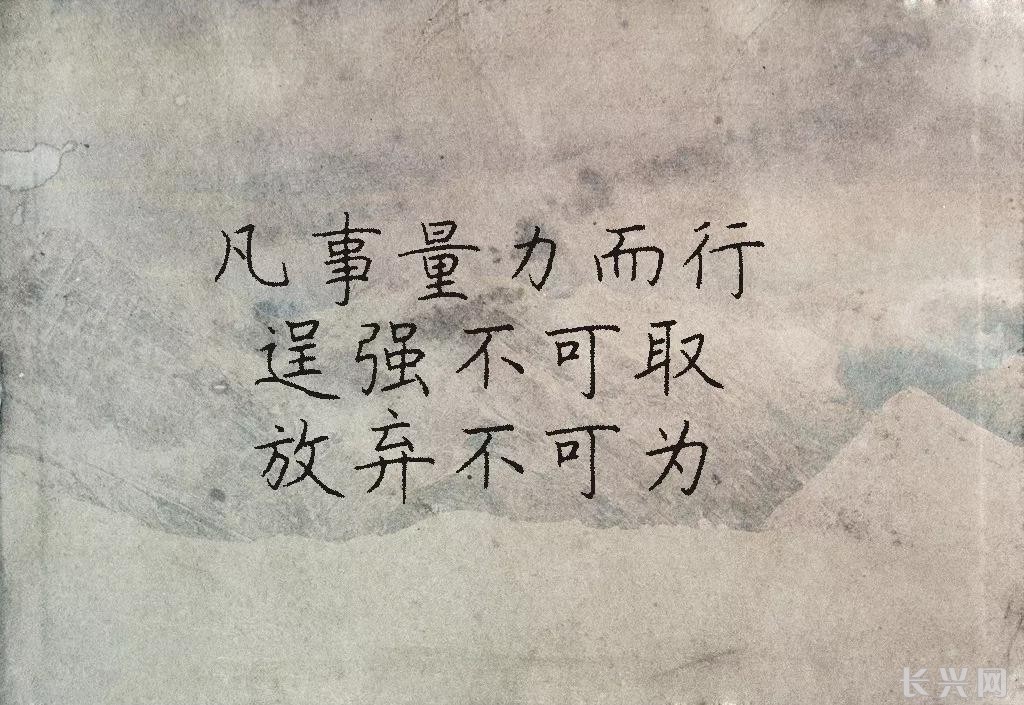 凡事量力而行
逞强不可取
放弃不可为
长兴网